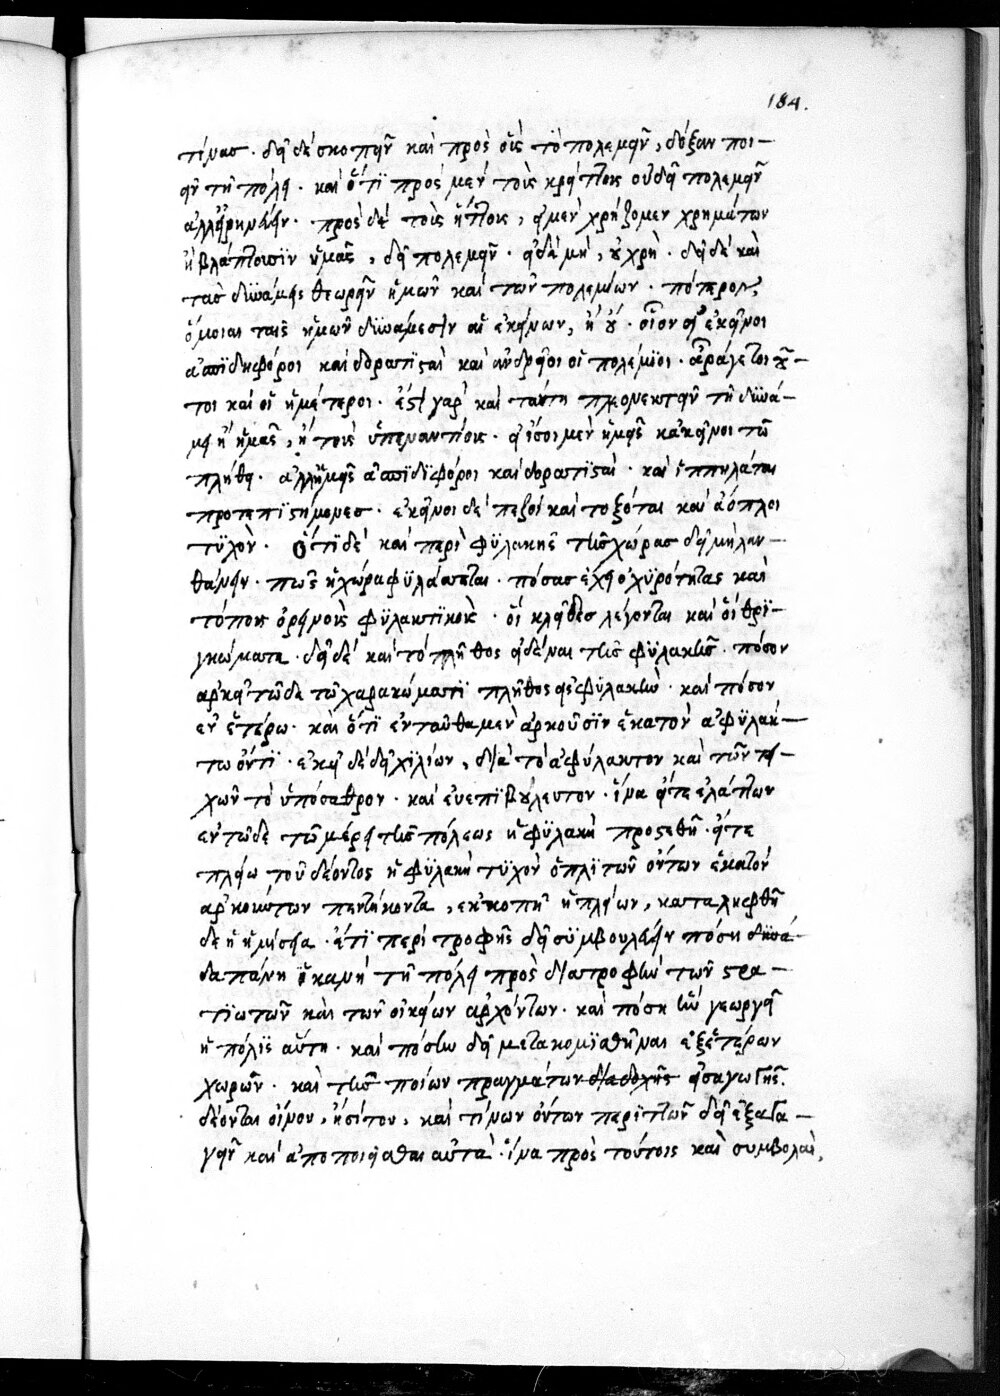 184.
τίνας. δεῖ δὲ σκοπεῖν καὶ πρὸς οἷς τὸ πολεμεῖν, δόξαν ποι-
εῖν τῇ πόλει. καὶ ὅτι πρὸς μὲν τοὺς κρείττους οὐ δεῖ πολεμεῖν
ἀλλ' εἰρηνεύειν. πρὸς δὲ τοὺς ἥττους, εἰ μὲν χρήζομεν χρημάτων
ἢ βλάπτουσιν ἡμᾶς, δεῖ πολεμεῖν. εἰ δὲ μὴ, οὐ χρὴ. δεῖ δὲ καὶ
τὰς δυνάμεις θεωρεῖν ἡμῶν καὶ τῶν πολεμίων. πότερον
ὅμοιαι ταῖς ἡμῶν δυνάμεσιν αἱ ἐκείνων, ἢ οὔ. οἷον εἰ ἐκεῖνοι
ἀσπιδηφόροι καὶ δορατισταὶ καὶ ἀνδρεῖοι οἱ πολέμιοι. ἆρά γε τοιοῦ-
τοι καὶ οἱ ἡμέτεροι. ἔστι γὰρ καὶ ταύτη πλεονεκτεῖν τῇ δυνά-
μει ἢ ἡμᾶς, ἢ τοὺς ὑπεναντίους. εἰ ἴσοι μὲν ἡμεῖς κἀκεῖνοι τῶ
πλήθει. ἀλλ' ἡμεῖς ἀσπιδιφόροι καὶ δορατισταὶ. καὶ ἱππηλάται
προτεπιστήμονες. ἐκεῖνοι δὲ πεζοὶ καὶ τοξόται καὶ ἄοπλοι
τυχὸν. Ὅτι δὲ καὶ περὶ φυλακῆς τῆς χώρας δεῖ μὴ λαν-
θάνειν. πῶς ἡ χώρα φυλάττεται. πόσας ἔχει ὀχυρότητας καὶ
τόπους ὀρεινοὺς φυλακτικοὺς. οἳ κλεῖθες λέγονται καὶ οἱ θρι-
γκώματα. δεῖ δὲ καὶ τὸ πλῆθος εἰδέναι τῆς φυλακῆς. πόσον
ἀρκεῖ τῶδε τῶ χαρακώματι πλῆθος εἰς φυλακὴν. καὶ πόσον
ἐν ἑτέρω. καὶ ὅτι ἐνταῦθα μὲν ἀρκοῦσιν ἑκατὸν ἀφυλάκ-
τω ὄντι. ἐκεῖ δὲ δεῖ χιλίων, διὰ τὸ ἀφύλακτον καὶ τῶν τει-
χῶν τὸ ὑπόσαθρον. καὶ εὐεπιβούλευτον. ἵνα εἴτε ἐλάττων
ἐν τῶδε τῶ μέρει τῆς πόλεως ἡ φυλακὴ προστεθῆ. εἴτε
πλείω τοῦ δέοντος ἡ φυλακὴ τυχὸν ὁπλιτῶν ὄντων ἑκατὸν
ἀρκούντων πεντήκοντα, ἐκκοπῆ ἡ πλείων, καταλειφθῆ
δὲ ἡ ἡμίσεια. ἔτι περὶ τροφῆς δεῖ συμβουλεύειν πόση δυνά
δαπάνη ἱκανὴ τῇ πόλει πρὸς διατροφὴν τῶν στρα-
τιωτῶν καὶ τῶν οἰκείων ἀρχόντων. καὶ πόση ἣν γεωργεῖ
ἡ πόλις αὕτη. καὶ πόσην δεῖ μετακομισθῆναι ἐξ ἑτέρων
χωρῶν. καὶ τῆς ποίων πραγμάτων διαδοχῆς εἰσαγωγῆς.
δέονται οἴνου, ἢ σίτου, καὶ τίνων ὄντων περιττῶν δεῖ ἐξαγα-
γεῖν καὶ ἀποποιεῖσθαι αὐτὰ. ἵνα πρὸς τούτοις καὶ συμβολαὶ,